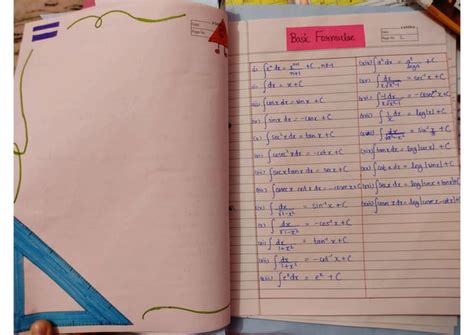 Basic Formulae
i) ∫xⁿdx = xⁿ⁺¹/n+1 + C , n≠-1
ii) ∫dx = x + C
iii) ∫cosx dx = sinx + C
iv) ∫sinx dx = -cosx + C
v) ∫sec²x dx = tanx + C
vi) ∫cosec²x dx = -cotx + C
vii) ∫secx tanx dx = secx + C
viii) ∫cosecx cotx dx = -cosecx + C
ix) ∫dx/√1-x² = sin⁻¹x + C
x) ∫dx/√1-x² = -cos⁻¹x + C
xi) ∫dx/1+x² = tan⁻¹x + C
xii) ∫dx/1+x² = -cot⁻¹x + C
xiii) ∫eˣdx = eˣ + C
xiv) ∫aˣdx = aˣ/loga + C
xv) ∫dx/x√x²-1 = sec⁻¹x + C
∫dx/x√x²-1 = -cosec⁻¹x + C
∫1/x dx = log|x| + C
∫dx/√a²-x² = sin⁻¹x/a + C
∫tanx dx = log|secx| + C
∫cotx dx = log|sinx| + C
∫secx dx = log|secx+tanx|+C
∫cosecx dx = log|cosecx-cotx|+C